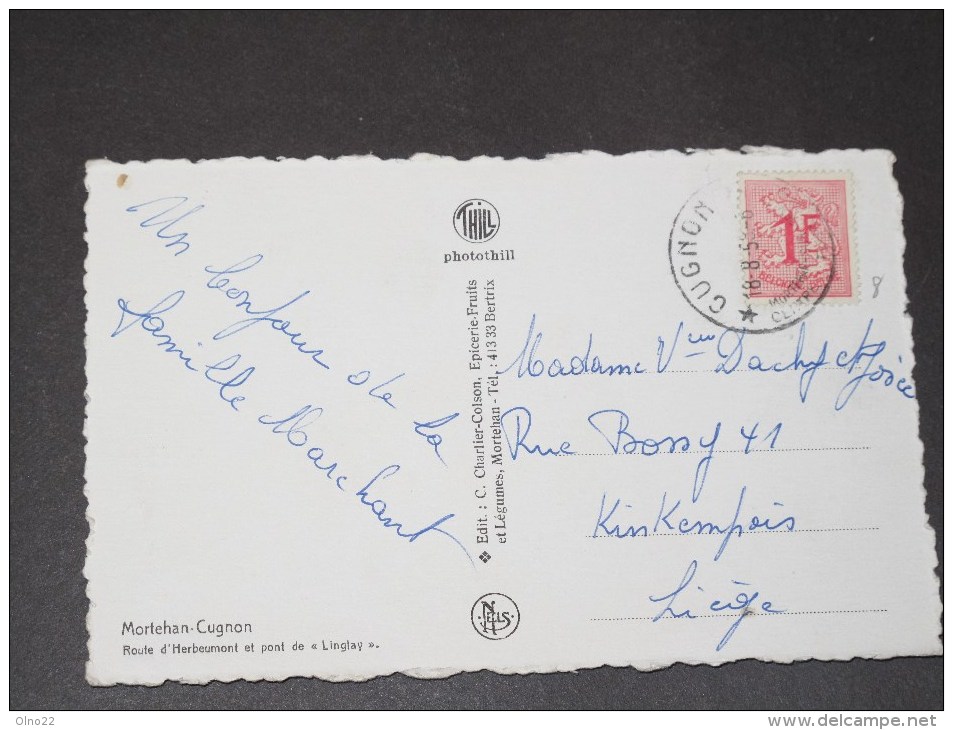 Un bonjour de la
famille Marchant
THILL
photothill
❖ Edit. : C. Charlier-Colson, Epicerie-Fruits
et Légumes, Mortehan - Tél. : 413 33 Bertrix
NELS
CUGNON
18-8-58
1F
Madame Vve Dachy et Josée
Rue Bossy 41
Kinkempois
Liège
8
Mortehan-Cugnon
Route d'Herbeumont et pont de « Linglay ».
Olno22
www.delcampe.net